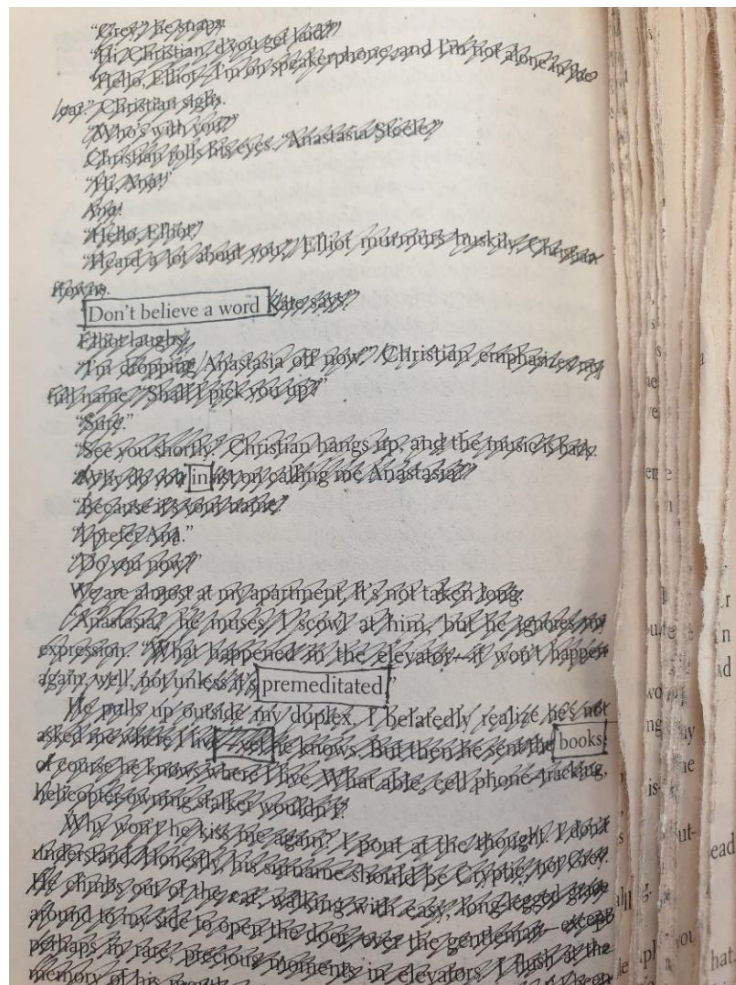 "Grey," he snaps.
"Hi, Christian, d'you get laid?"
"Hello, Elliot–I'm on speakerphone, and I'm not alone in the
car." Christian sighs.
"Who's with you?"
Christian rolls his eyes. "Anastasia Steele."
"Hi, Ana!"
Ana!
"Hello, Elliot."
"Heard a lot about you," Elliot murmurs huskily. Christian
frowns.
"Don't believe a word Kate says."
Elliot laughs.
"I'm dropping Anastasia off now." Christian emphasizes my
full name. "Shall I pick you up?"
"Sure."
"See you shortly." Christian hangs up, and the music is back.
"Why do you insist on calling me Anastasia?"
"Because it's your name."
"I prefer Ana."
"Do you now?"
We are almost at my apartment. It's not taken long.
"Anastasia," he muses. I scowl at him, but he ignores my
expression. "What happened in the elevator—it won't happen
again, well, not unless it's premeditated."
He pulls up outside my duplex. I belatedly realize he's not
asked me where I live—yet he knows. But then he sent the books;
of course he knows where I live. What able, cell phone-tracking,
helicopter-owning stalker wouldn't?
Why won't he kiss me again? I pout at the thought. I don't
understand. Honestly, his surname should be Cryptic, not Grey.
He climbs out of the car, walking with easy, long-legged grace
around to my side to open the door, ever the gentleman—except
perhaps in rare, precious moments in elevators. I flush at the
memory of his